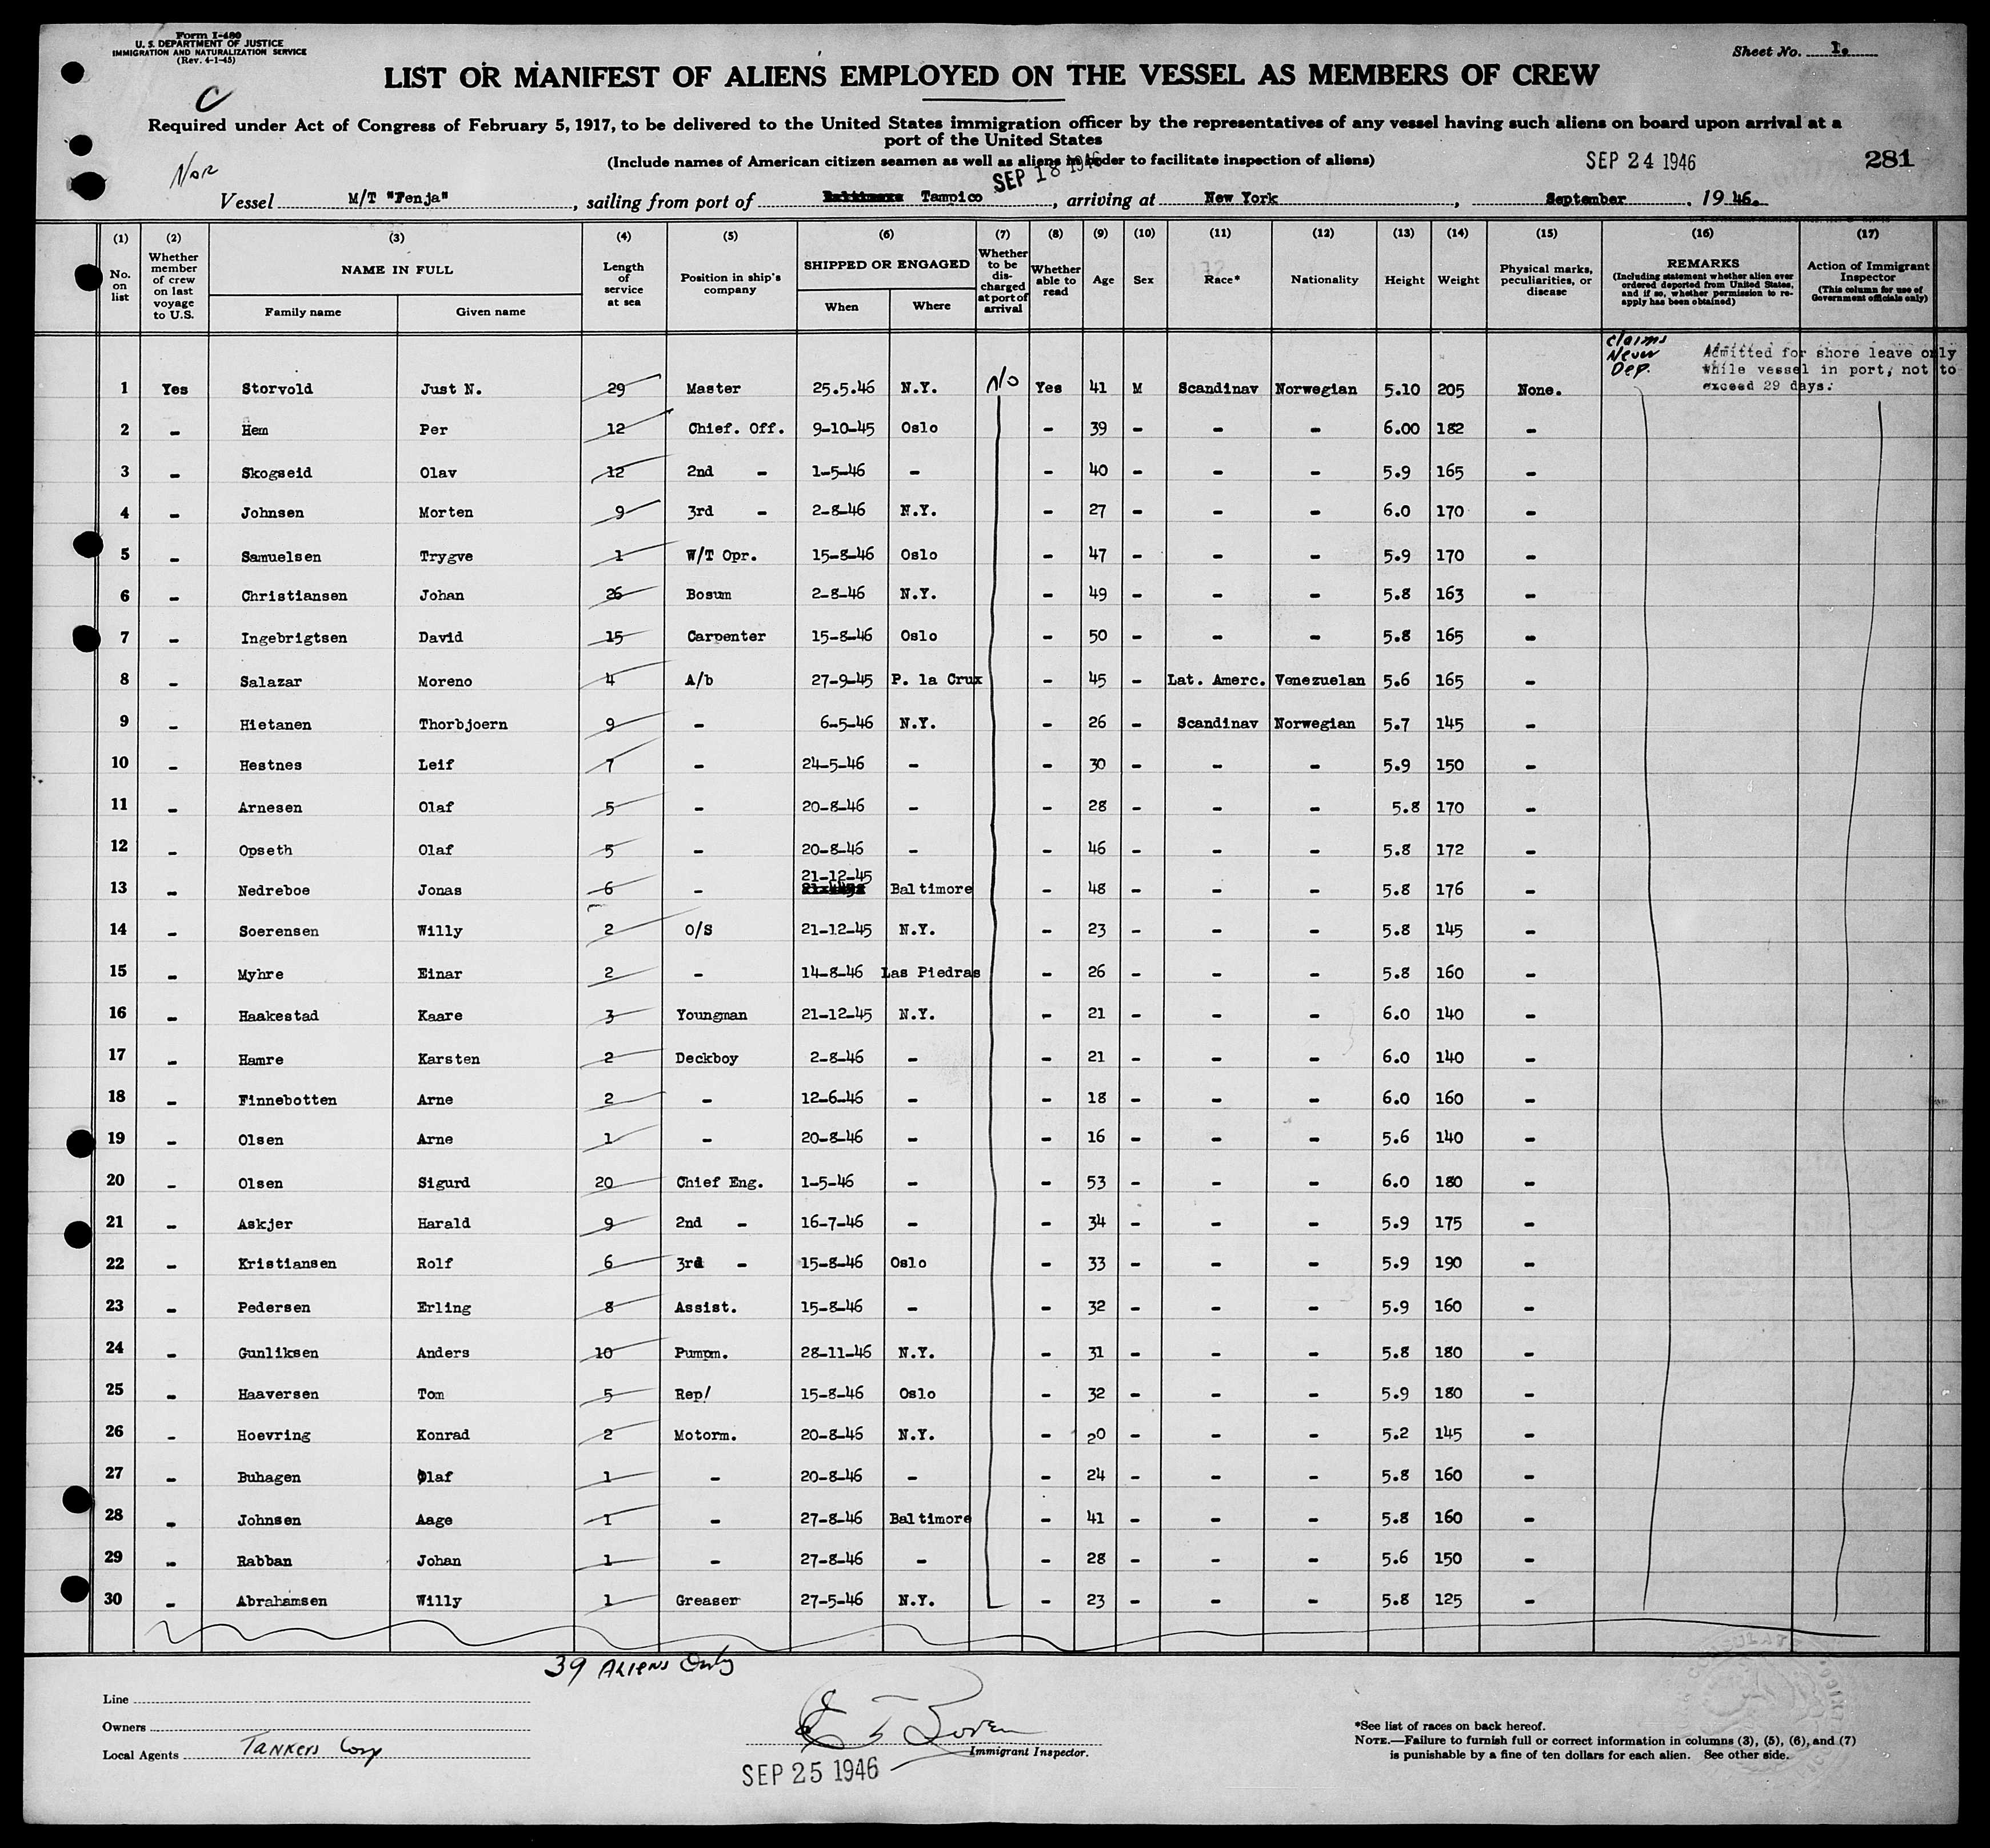 Form I-480
U. S. DEPARTMENT OF JUSTICE
IMMIGRATION AND NATURALIZATION SERVICE
(Rev. 4-1-45)
Sheet No. 1.
LIST OR MANIFEST OF ALIENS EMPLOYED ON THE VESSEL AS MEMBERS OF CREW
C
Required under Act of Congress of February 5, 1917, to be delivered to the United States immigration officer by the representatives of any vessel having such aliens on board upon arrival at a
port of the United States
(Include names of American citizen seamen as well as aliens in order to facilitate inspection of aliens)
SEP 18 1946
SEP 24 1946
281
Nor
Vessel M/T "Fenja", sailing from port of Baltimore Tampico, arriving at New York, September, 1946.
(1) (2) (3) (4) (5) (6) (7) (8) (9) (10) (11) (12) (13) (14) (15) (16) (17)
No. on list
Whether member of crew on last voyage to U.S.
NAME IN FULL
Family name
Given name
Length of service at sea
Position in ship's company
SHIPPED OR ENGAGED
When
Where
Whether to be discharged at port of arrival
Whether able to read
Age
Sex
Race*
Nationality
Height
Weight
Physical marks, peculiarities, or disease
REMARKS
(Including statement whether alien ever ordered deported from United States, and if so, whether permission to reapply has been obtained)
Action of Immigrant Inspector
(This column for use of Government officials only)
Claims Never Dep.
Admitted for shore leave only
while vessel in port, not to
exceed 29 days.
1 Yes Storvold Just N. 29 Master 25.5.46 N.Y. No Yes 41 M Scandinav Norwegian 5.10 205 None.
2 - Hem Per 12 Chief. Off. 9-10-45 Oslo - 39 - - - 6.00 182 -
3 - Skogseid Olav 12 2nd - 1-5-46 - - 40 - - - 5.9 165 -
4 - Johnsen Morten 9 3rd - 2-8-46 N.Y. - 27 - - - 6.0 170 -
5 - Samuelsen Trygve 1 W/T Opr. 15-8-46 Oslo - 47 - - - 5.9 170 -
6 - Christiansen Johan 26 Bosum 2-8-46 N.Y. - 49 - - - 5.8 163 -
7 - Ingebrigtsen David 15 Carpenter 15-8-46 Oslo - 50 - - - 5.8 165 -
8 - Salazar Moreno 4 A/b 27-9-45 P. la Crux - 45 - Lat. Amerc. Venezuelan 5.6 165 -
9 - Hietanen Thorbjoern 9 - 6-5-46 N.Y. - 26 - Scandinav Norwegian 5.7 145 -
10 - Hestnes Leif 7 - 24-5-46 - - 30 - - - 5.9 150 -
11 - Arnesen Olaf 5 - 20-8-46 - - 28 - - - 5.8 170 -
12 - Opseth Olaf 5 - 20-8-46 - - 46 - - - 5.8 172 -
13 - Nedreboe Jonas 6 - 21-12-45 Baltimore - 48 - - - 5.8 176 -
14 - Soerensen Willy 2 O/S 21-12-45 N.Y. - 23 - - - 5.8 145 -
15 - Myhre Einar 2 - 14-8-46 Las Piedras - 26 - - - 5.8 160 -
16 - Haakestad Kaare 3 Youngman 21-12-45 N.Y. - 21 - - - 6.0 140 -
17 - Hamre Karsten 2 Deckboy 2-8-46 - - 21 - - - 6.0 140 -
18 - Finnebotten Arne 2 - 12-6-46 - - 18 - - - 6.0 160 -
19 - Olsen Arne 1 - 20-8-46 - - 16 - - - 5.6 140 -
20 - Olsen Sigurd 20 Chief Eng. 1-5-46 - - 53 - - - 6.0 180 -
21 - Askjer Harald 9 2nd - 16-7-46 - - 34 - - - 5.9 175 -
22 - Kristiansen Rolf 6 3rd - 15-8-46 Oslo - 33 - - - 5.9 190 -
23 - Pedersen Erling 8 Assist. 15-8-46 - - 32 - - - 5.9 160 -
24 - Gunliksen Anders 10 Pumpm. 28-11-46 N.Y. - 31 - - - 5.8 180 -
25 - Haaversen Tom 5 Rep/ 15-8-46 Oslo - 32 - - - 5.9 180 -
26 - Hoevring Konrad 2 Motorm. 20-8-46 N.Y. - 20 - - - 5.2 145 -
27 - Buhagen Olaf 1 - 20-8-46 - - 24 - - - 5.8 160 -
28 - Johnsen Aage 1 - 27-8-46 Baltimore - 41 - - - 5.8 160 -
29 - Rabban Johan 1 - 27-8-46 - - 28 - - - 5.6 150 -
30 - Abrahamsen Willy 1 Greaser 27-5-46 N.Y. - 23 - - - 5.8 125 -
39 Aliens Only
Line
Owners
Local Agents Tankers Corp
Immigrant Inspector.
SEP 25 1946
*See list of races on back hereof.
NOTE.—Failure to furnish full or correct information in columns (3), (5), (6), and (7)
is punishable by a fine of ten dollars for each alien. See other side.